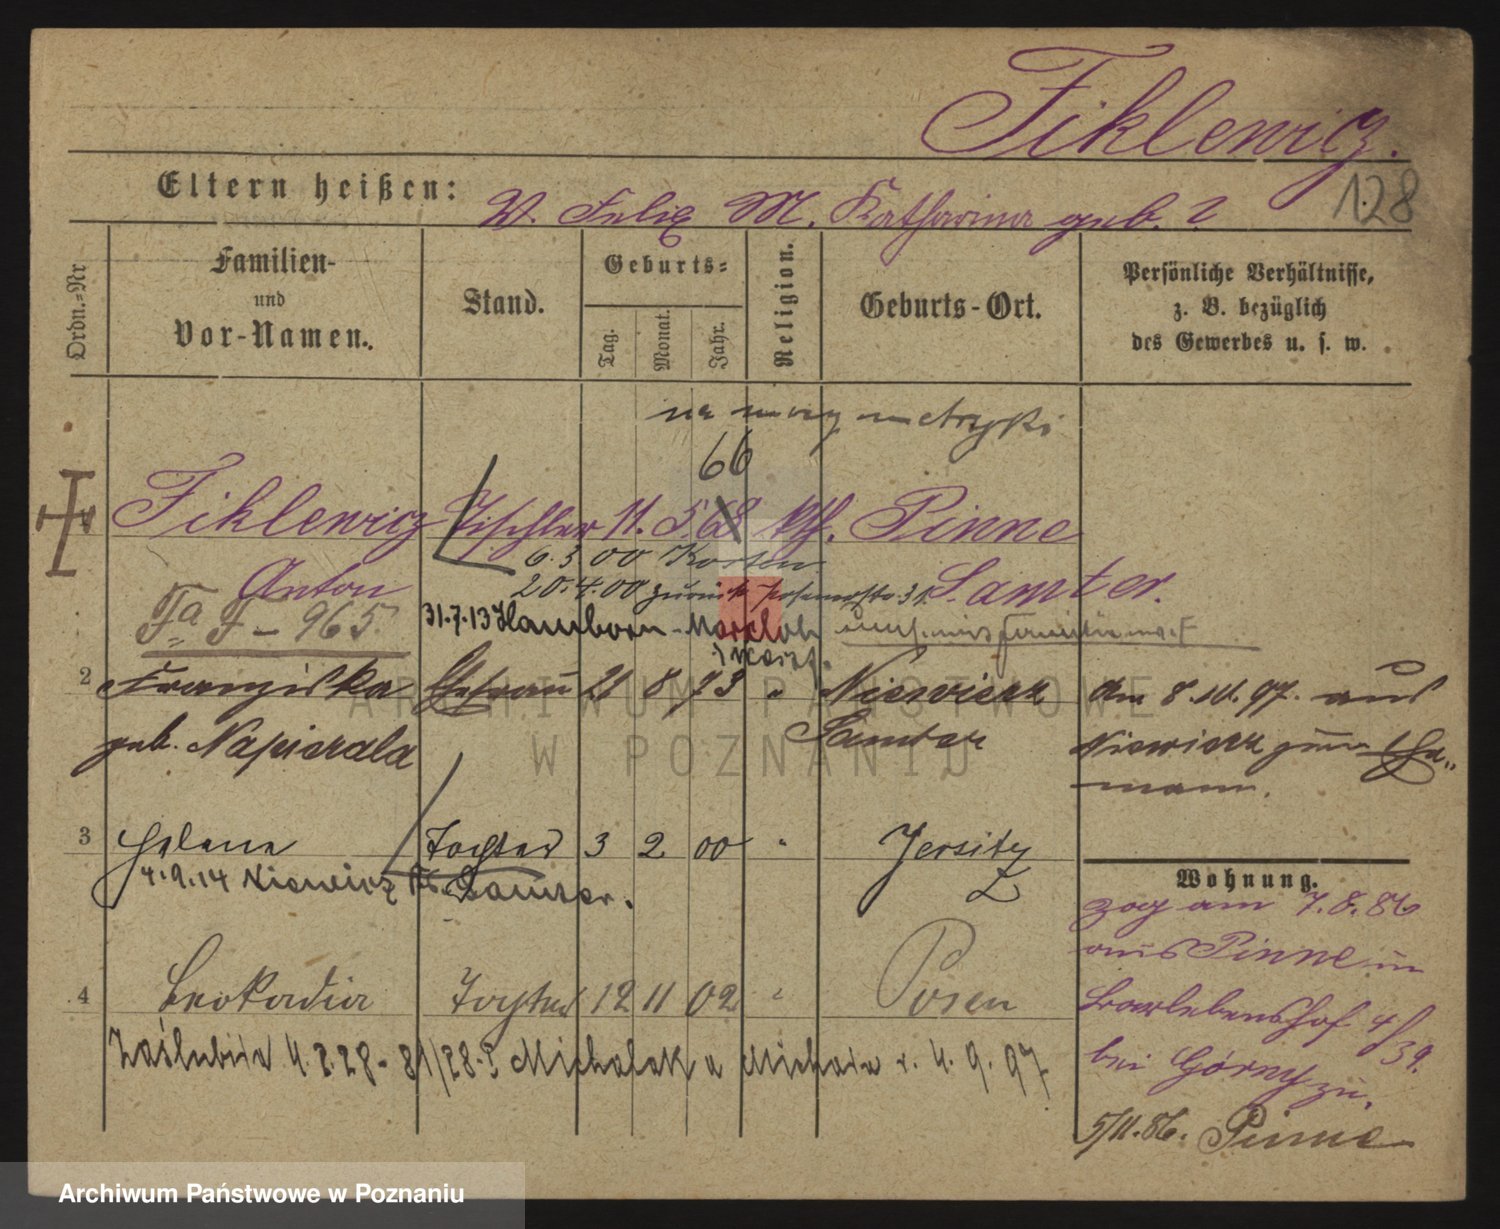 Fiklewicz.
Eltern heißen: V. Felix M. Katharina geb. ?
128
Ordn.=Nr
Familien-
und
Vor-Namen.
Stand.
Geburts=
Tag.
Monat.
Jahr.
Religion.
Geburts-Ort.
Persönliche Verhältnisse,
z. B. bezüglich
des Gewerbes u. s. w.
na mocy metryki
66
Fiklewicz Tischler 11. 5. 68 kth. Pinne
6.3.00 Kosten
Anton
20.4.00 zurück 31. Samter.
Fa F - 965.
31.7.13 Hamborn - Marxloh
2 Franziska Ehefrau 21 8 73 " Niewierz
geb. Napierala
Samter
Am 8.11.97. aus
Niewierz zum Ehe„
mann.
3 Helene Tochter 3 2 00 " Jersitz
4.9.14 Niewierz Kr. Samter.
4 Leokadia Tochter 12 11 02 " Posen
Zaślubiła 4.2.28 - 81/28 - Michalak a Michała r. 4.9.97
Wohnung.
zog am 7.8.86
aus Pinne in
4/39.
bei Górny zu.
5/11.86. Pinne
ARCHIWUM PAŃSTWOWE
W POZNANIU
Archiwum Państwowe w Poznaniu